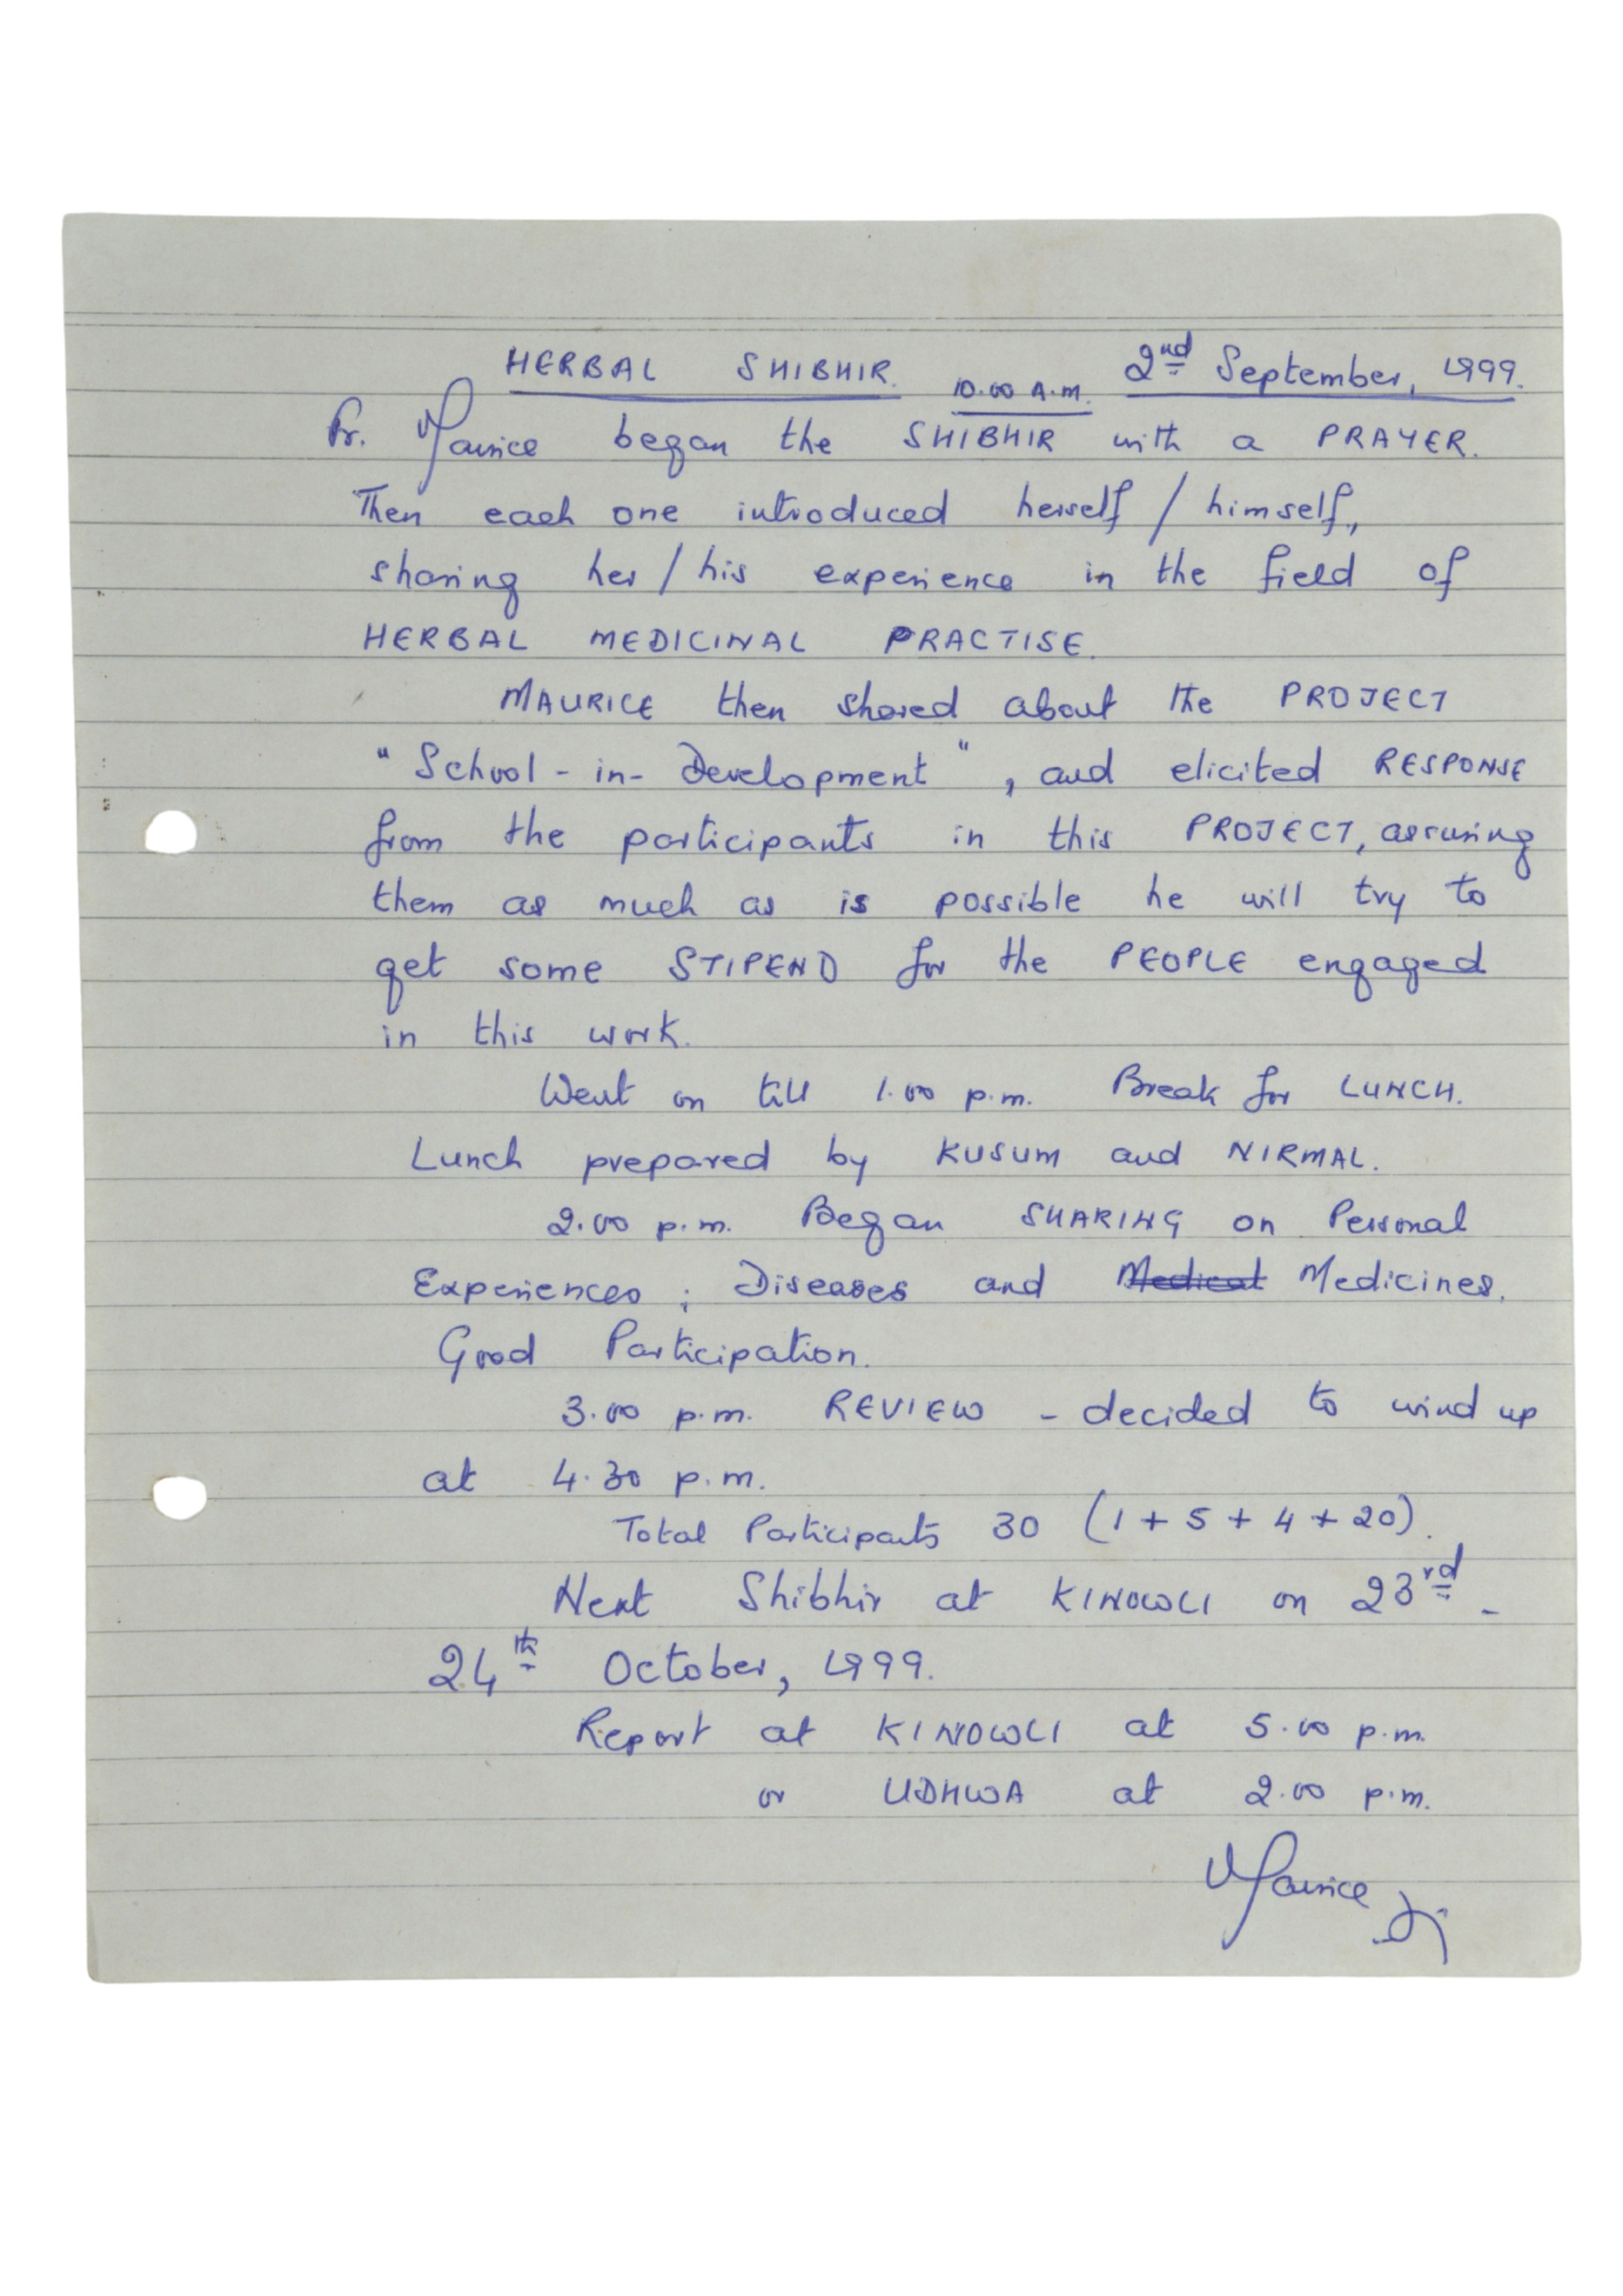 HERBAL SHIBHIR. 10.00 A.M. 2nd September, 1999.
Fr. Maurice began the SHIBHIR with a PRAYER.
Then each one introduced herself / himself,
sharing her / his experience in the field of
HERBAL MEDICINAL PRACTISE.
MAURICE then shared about the PROJECT
" School - in - Development " , and elicited RESPONSE
from the participants in this PROJECT, assuring
them as much as is possible he will try to
get some STIPEND for the PEOPLE engaged
in this work.
Went on till 1.00 p.m. Break for LUNCH.
Lunch prepared by KUSUM and NIRMAL.
2.00 p.m. Began SHARING on Personal
Experiences ; Diseases and Medical Medicines.
Good Participation.
3.00 p.m. REVIEW - decided to wind up
at 4.30 p.m.
Total Participants 30 (1 + 5 + 4 + 20).
Next Shibhir at KINOWLI on 23rd -
24th October, 1999.
Report at KINOWLI at 5.00 p.m.
or UDHWA at 2.00 p.m.
Maurice